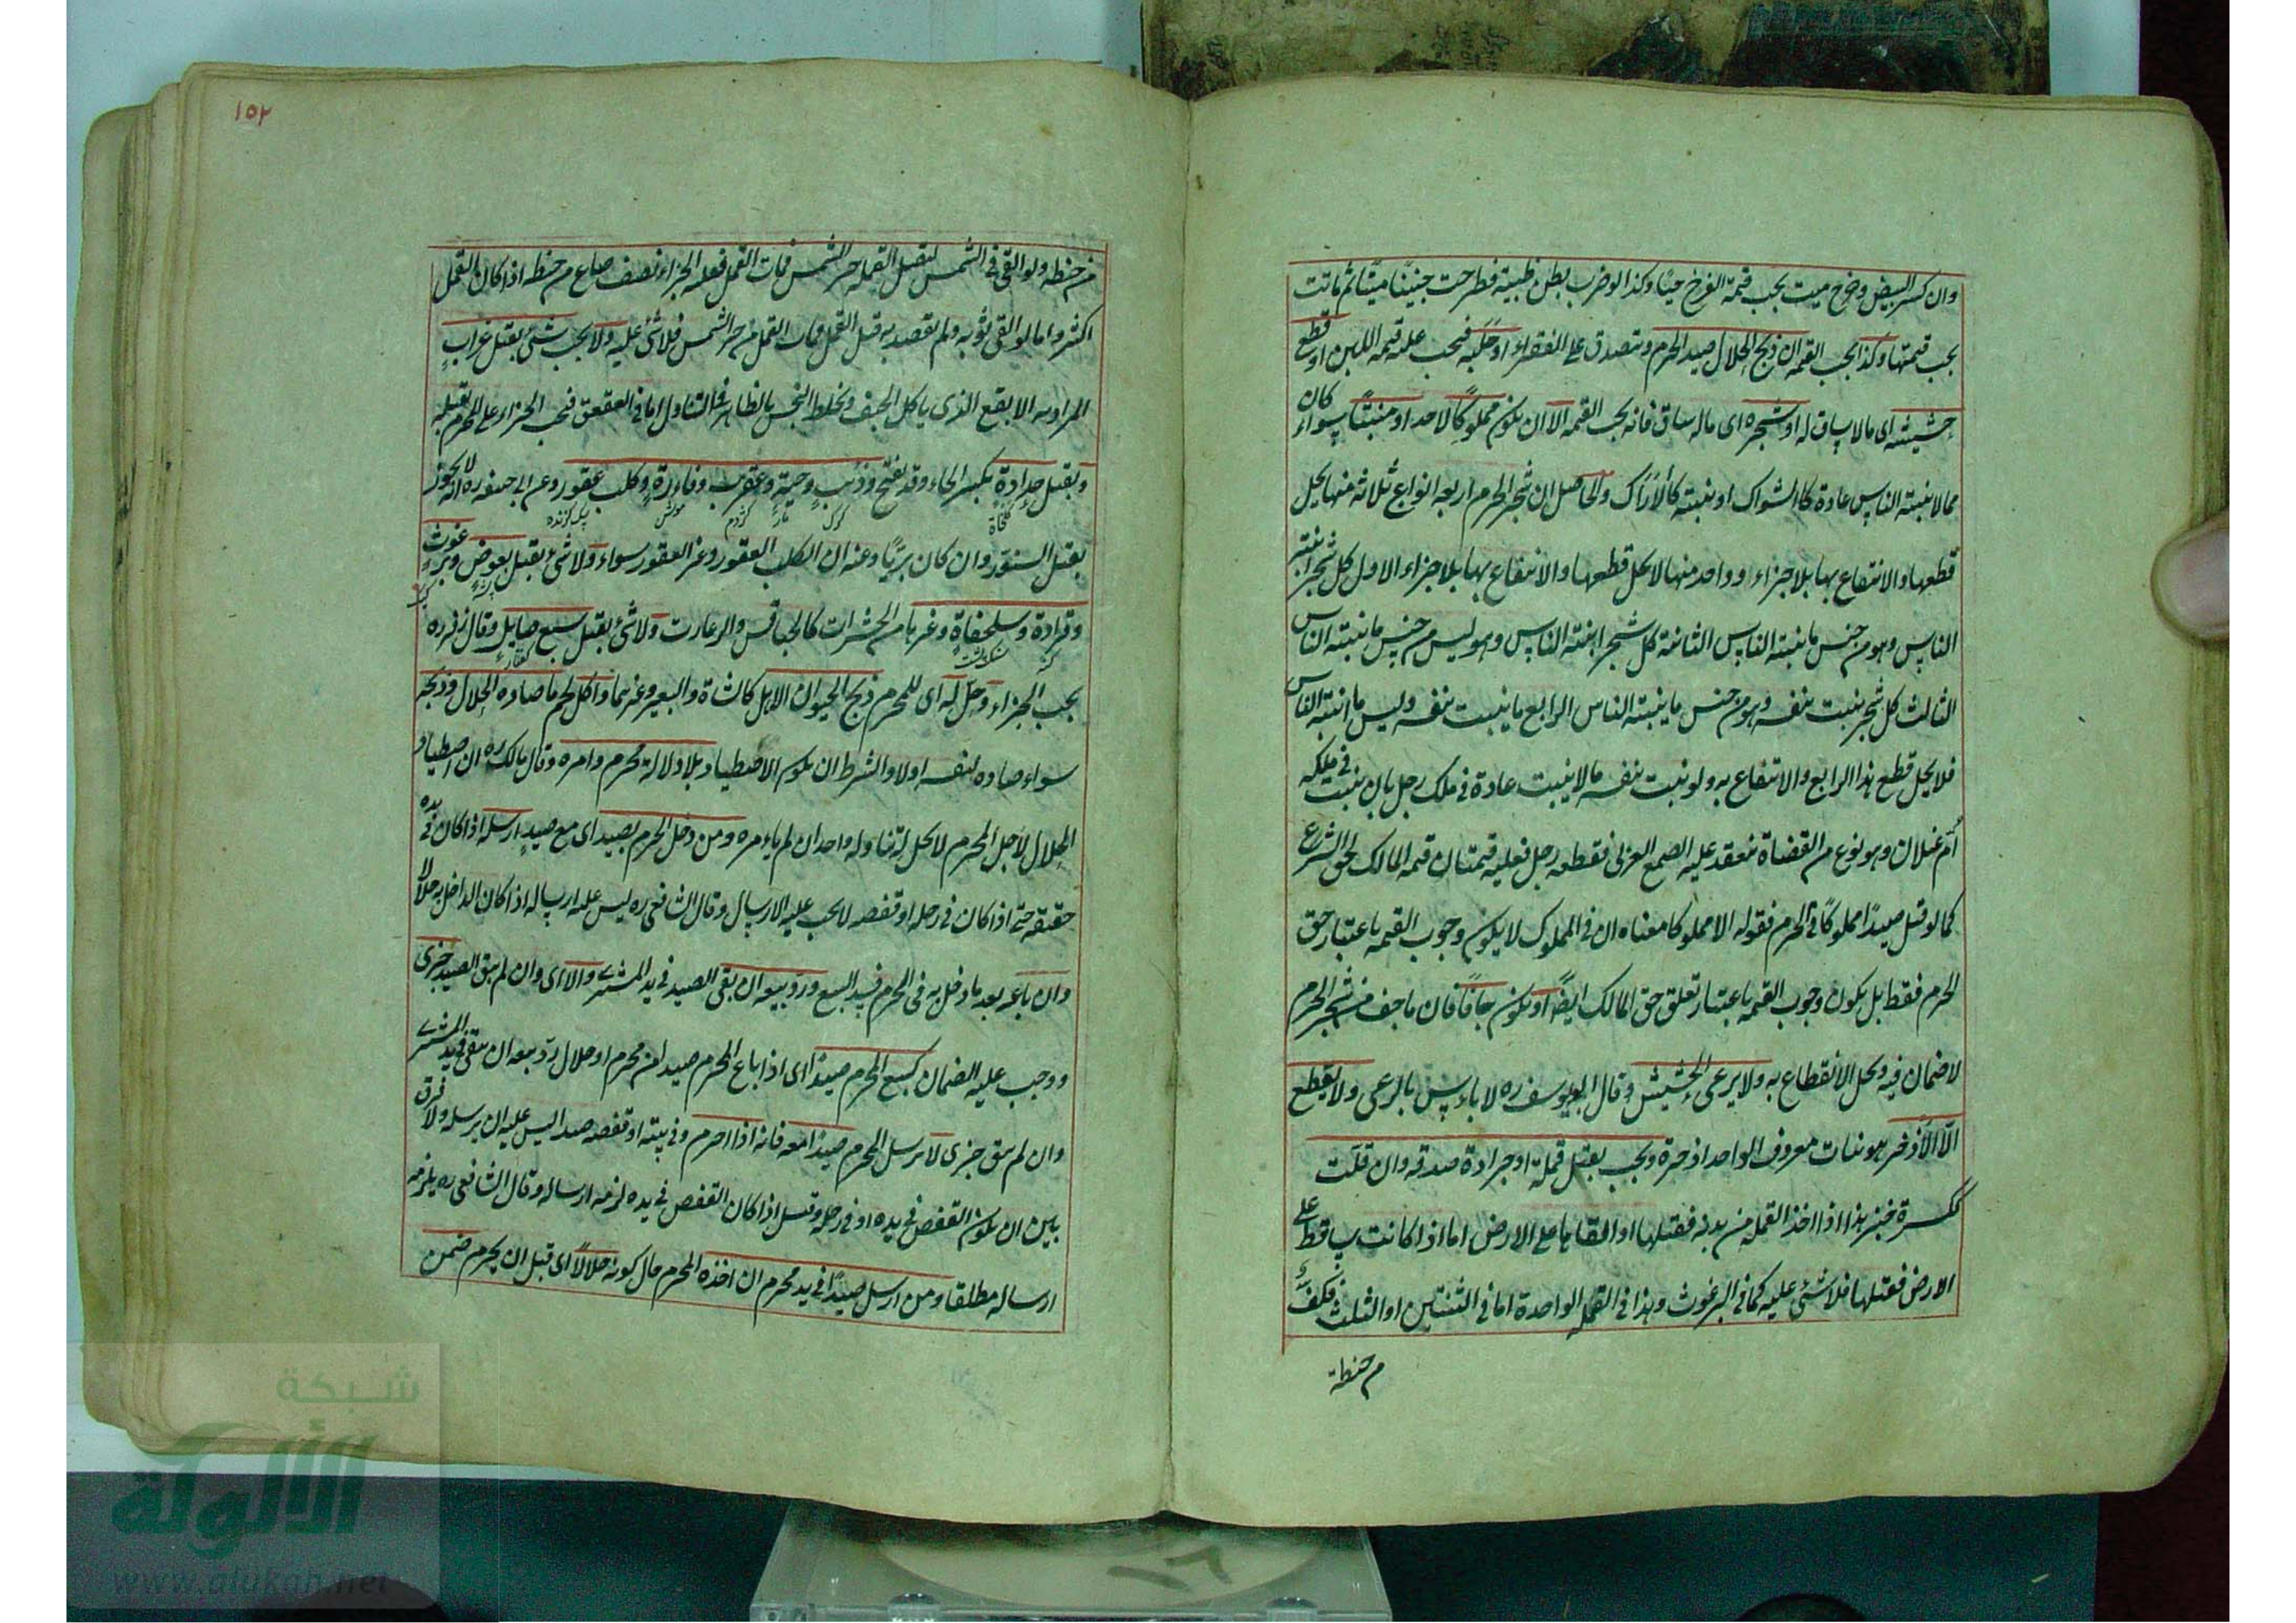 وان كسر البيض وخرج ميت يجب قيمة الفرخ حيًا وكذا لو ضرب بطن ظبية فطرحت جنينًا ميتًا ثم ماتت
يجب قيمتها وكذا يجب القيمة ان ذبح الحلال صيد الحرم ويتصدق على الفقراء او حلبه فيجب عليه قيمة اللبن او قطع
حشيشه اى ما لا ساق له او شجره اى ما له ساق فانه يجب القيمة الا ان يكون مملوكًا لاحد او منبتًا سواء كان
مما لا ينبته الناس عادة كالشواك او ينبته كالأراك والحاصل ان شجر الحرم اربعة انواع ثلاثة منها يحل
قطعها والانتفاع بها بلا جزاء وواحد منها لا يحل قطعها والانتفاع بها بلا جزاء الاول كل شجر انبته
الناس وهو من جنس ما ينبته الناس الثانية كل شجر انبته الناس وهو ليس من جنس ما ينبته الناس
الثالث كل شجر ينبت بنفسه وهو من جنس ما ينبته الناس الرابع ما ينبت بنفسه وليس ما انبته الناس
فلا يحل قطع هذا الرابع والانتفاع به ولو نبت بنفسه ما لا ينبت عادة في ملك رجل بان نبت في ملكه
أم غيلان وهو نوع من القضاة ينعقد عليه الصمع العربى فقطعه رجل فعليه قيمتان قيمة المالك لحق الشرع
كما لو قتل صيدًا مملوكًا في الحرم فقوله الا مملوكا معناه ان في المملوك لا يكون وجوب القيمة باعتبار حق
الحرم فقط بل يكون وجوب القيمة باعتبار تعلق حق المالك ايضًا او يكون جافًا فان ما جف من شجر الحرم
لا ضمان فيه ويحل الانقطاع به ولا يرعى الحشيش وقال ابو يوسف ره لا باءس بالرعى ولا يقطع
الا الاذخر هو نبات معروف الواحد اذخرة ويجب بقتل قملة او جرادة صدقه وان قلت
ككسرة خبز هذا اذا اخذ القملة من بدنه فقتلها او القاها على الارض اما اذا كانت ساقط على
الارض فقتلها فلا شئ عليه كما في البرغوث وهذا في القملة الواحدة اما في الثنتين او الثلث فكف
م حنطة
١٥٢
من حنطه ولو القى في الشمس ليقتل القملة حر الشمس فمات القمل فعليه الجزاء نصف صاع من حنطه اذا كان القمل
اكثر واما لو القى ثوبه ولم يقصد به قتل القمل فمات القمل من حر الشمس فلا شئ عليه ولا يجب شئ بقتل غراب
المراد به الابقع الذى ياكل الجيف ويخلط النجس بالطاهر في التناول اما في العقعق فيجب الجزاء على المحرم بقتله
وبقتل حدادة بكسر الحاء وقد يفتح وذئب وحية وعقرب وفاءرة وكلب عقور وعن ابى حنيفة ره انه لا يجوز
كرك مار كژدم موش سك كزنده
بقتل السنور وان كان بريًا وعنه ان الكلب العقور وغير العقور سواء ولا شئ بقتل بعوض وبرغوث
وقرادة وسلحفاة وغيرها من الحشرات كالخنافس والزعارت ولا شئ بقتل سبع صايل وقال زفر ره
كنه كفتار
يجب الجزاء وحل له اى للمحرم ذبح الحيوان الاهل كالشاة والبعير وغيرهما واكل لحم ما صاده الحلال وذبحه
سواء صاده لنفسه اولا والشرط ان يكون الاصطياد بلا دلالة محرم وامره وقال مالك ره ان اصطياد
الحلال لاجل المحرم لا يحل له تناوله واحد ان لم ياءمره ومن دخل الحرم بصيد اى مع صيد ارسله اذا كان في يده
حقيقة حتى اذا كان في رحله او قفصه لا يجب عليه الارسال وقال الشافعى ره ليس عليه ارساله اذا كان الداخل به حلالا
وان باعه بعد ما دخل به فى الحرم فسد البيع ورد بيعه ان بقى الصيد في يد المشترى والا اى وان لم يبق الصيد جزى
ووجب عليه الضمان كبيع المحرم صيدًا اى اذا باع المحرم صيدا من محرم او حلال رد بيعه ان بقى في يد المشترى
وان لم يبق جزى لا يرسل المحرم صيدًا معه فانه اذا احرم وفى بيته او قفصه صيد ليس عليه ان يرسله ولا فرق
بين ان يكون القفص في يده او فى رحله وقيل اذا كان القفص في يده لزمه ارساله وقال الشافعى ره يلزمه
ارساله مطلقا ومن ارسل صيدًا في يد محرم ان اخذه المحرم حال كونه حلالًا اى قبل ان يحرم ضمن
شبكة
الألوكة
www.alukah.net